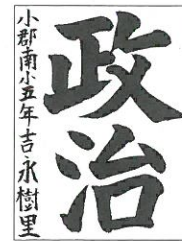 政治
小郡南小五年吉永樹里